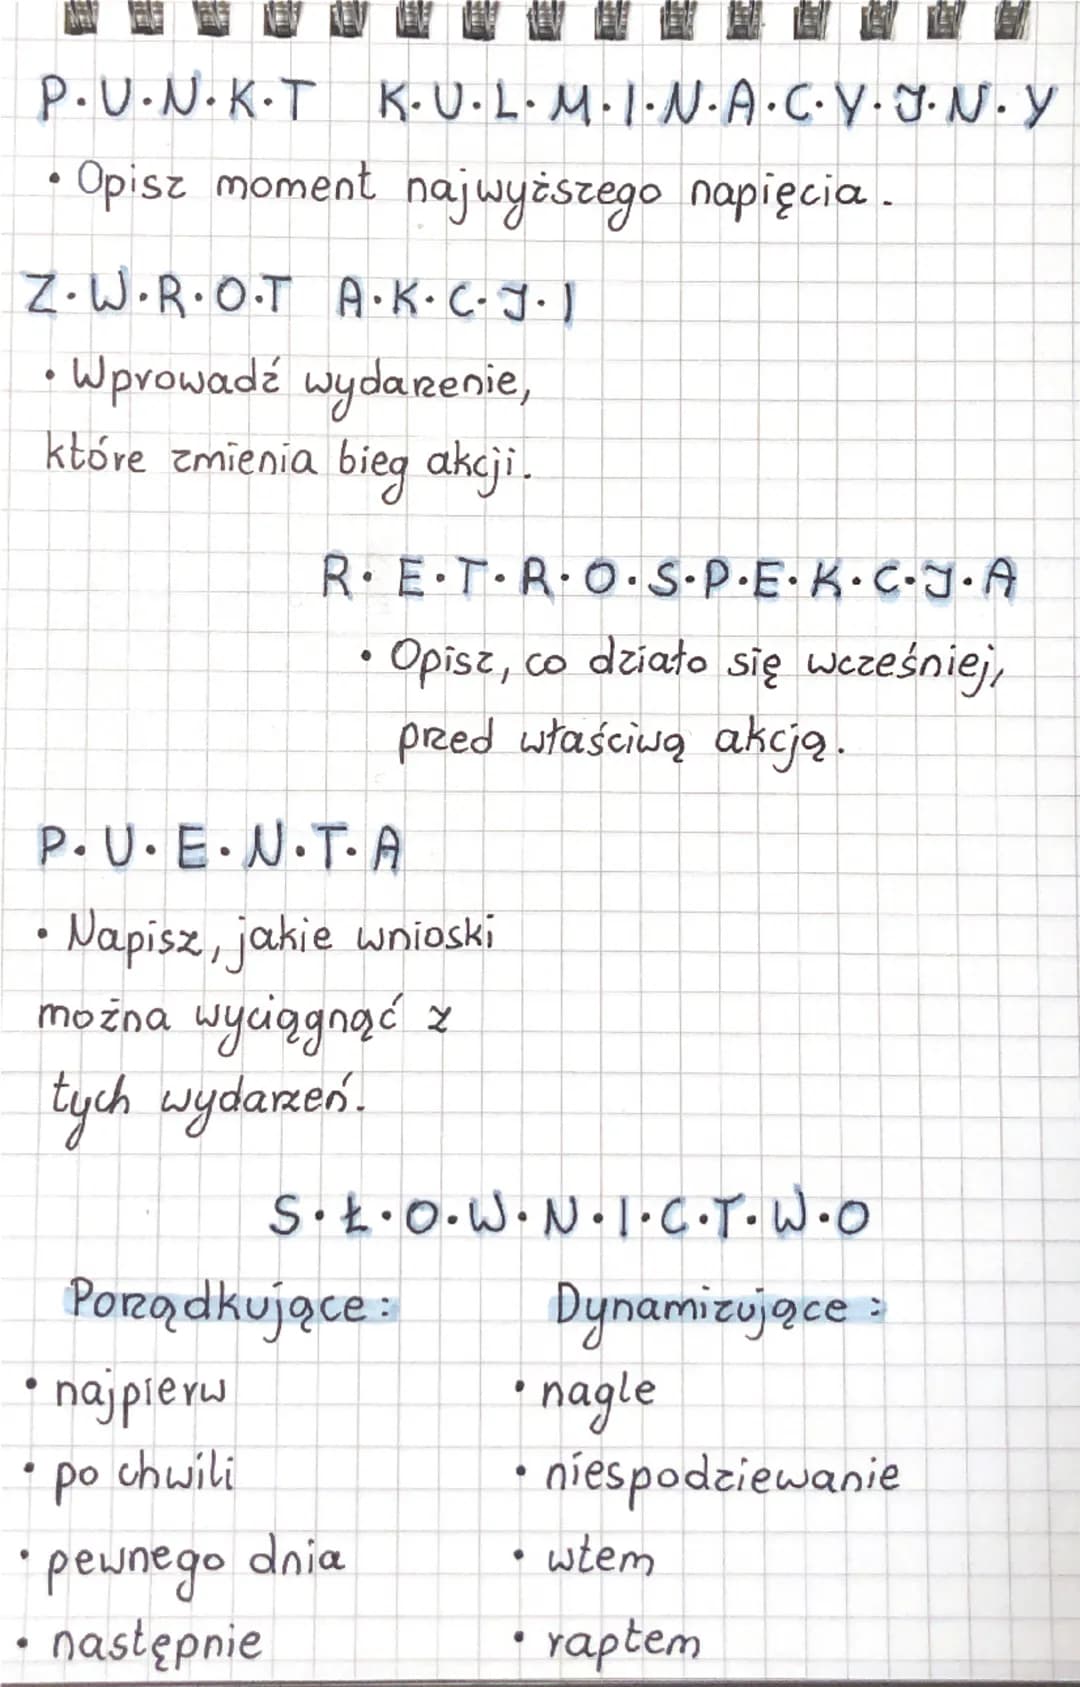 P.U.N.K.T K.U.L.M.I.N.A.C.Y.J.N.Y
• Opisz moment najwyższego napięcia.
Z.W.R.O.T A.K.C.J.I
• Wprowadź wydarzenie,
które zmienia bieg akcji.
R.E.T.R.O.S.P.E.K.C.J.A
• Opisz, co działo się wcześniej,
przed właściwą akcją.
P.U.E.N.T.A
• Napisz, jakie wnioski
można wyciągnąć z
tych wydarzeń.
S.Ł.O.W.N.I.C.T.W.O
Porządkujące: Dynamizujące:
• najpierw • nagle
• po chwili • niespodziewanie
• pewnego dnia • wtem
• następnie • raptem